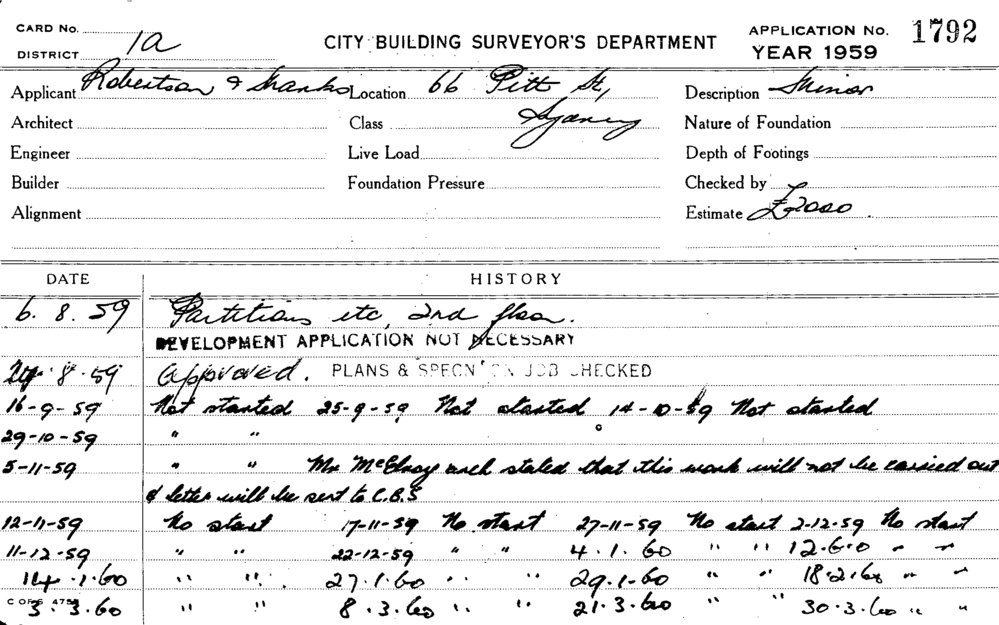 CARD No. APPLICATION No. 1792
DISTRICT 1a CITY BUILDING SURVEYOR'S DEPARTMENT YEAR 1959
Applicant Robertson & Shanks Location 66 Pitt St, Description Minor
Architect Class Sydney Nature of Foundation
Engineer Live Load Depth of Footings
Builder Foundation Pressure Checked by
Alignment Estimate £2000
DATE HISTORY
6.8.59 Partitions etc, 2nd floor.
DEVELOPMENT APPLICATION NOT NECESSARY
8.59 Approved. PLANS & SPECN ON JOB CHECKED
16-9-59 Not started 25-9-59 Not started 14-10-59 Not started
29-10-59 " "
5-11-59 " " Mr McElroy arch stated that this work will not be carried out
& letter will be sent to C.B.S
12-11-59 No start 17-11-59 No start 27-11-59 No start 2-12-59 No start
11-12-59 " " 22-12-59 " " 4.1.60 " " 12.6.0 " "
14.1.60 " " 27.1.60 " " 29.1.60 " " 18.2.60 " "
3.3.60 " " 8.3.60 " " 21.3.60 " " 30.3.60 " "